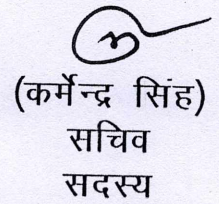 (कर्मेन्द्र सिंह)
सचिव
सदस्य